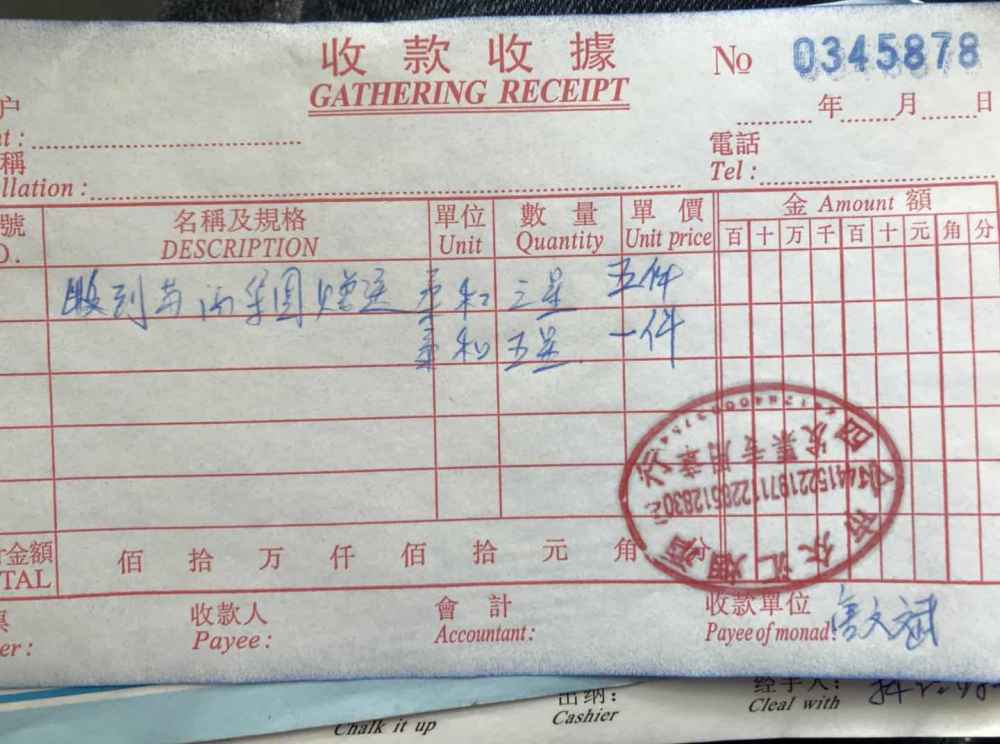 收款收據
GATHERING RECEIPT
No 0345878
年 月 日
户
nt:
電話
Tel:
稱
llation:
號
O.
名稱及規格
DESCRIPTION
單位
Unit
數量
Quantity
單價
Unit price
金 Amount 額
百 十 万 千 百 十 元 角 分
收到 集团赠送 和三星 五件
和五星 一件
发票专用章
金額
TAL
佰 拾 万 仟 佰 拾 元 角 分
er:
收款人
Payee:
會計
Accountant:
收款單位
Payee of monad:
文斌
Chalk it up
出纳:
Cashier
经手人:
Cleal with